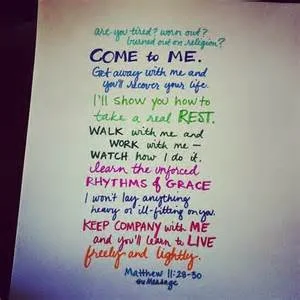 are you tired? worn out?
burned out on religion?
COME to ME.
Get away with me and
you'll recover your life.
I'll show you how to
take a real REST.
WALK with me and
WORK with me—
WATCH how I do it.
learn the unforced
RHYTHMS of GRACE
I won't lay anything
heavy or ill-fitting on you.
KEEP COMPANY with ME
and you'll learn to LIVE
freely and lightly.
Matthew 11:28-30
the Message